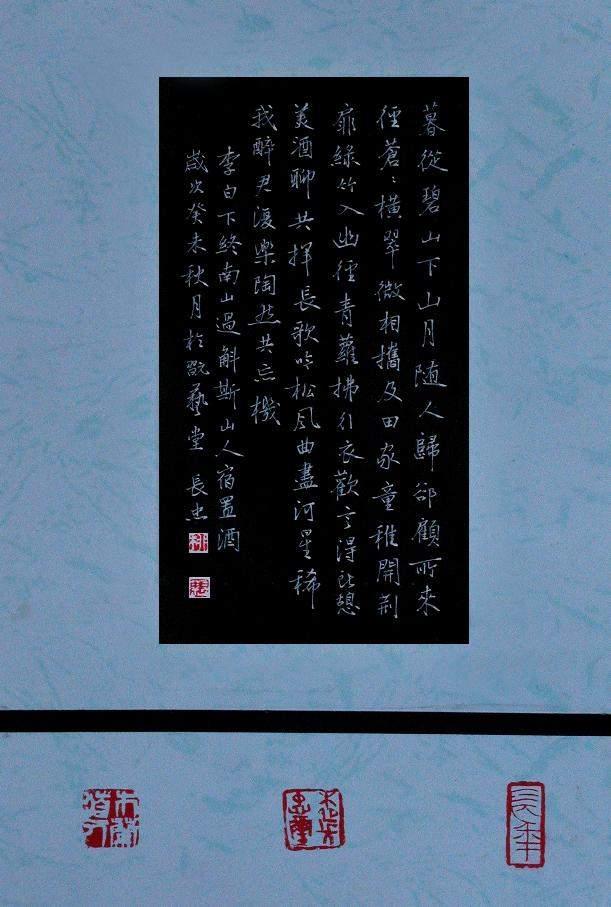 暮從碧山下山月随人歸郤顧所來
徑蒼〻横翠微相攜及田家童稚開荆
扉綠竹入幽徑青蘿拂行衣歡言得所憩
美酒聊共揮長歌吟松風曲盡河星稀
我醉君復樂陶然共忘機
李白下終南山過斛斯山人宿置酒
歲次癸未秋月於藝堂 長忠
長年